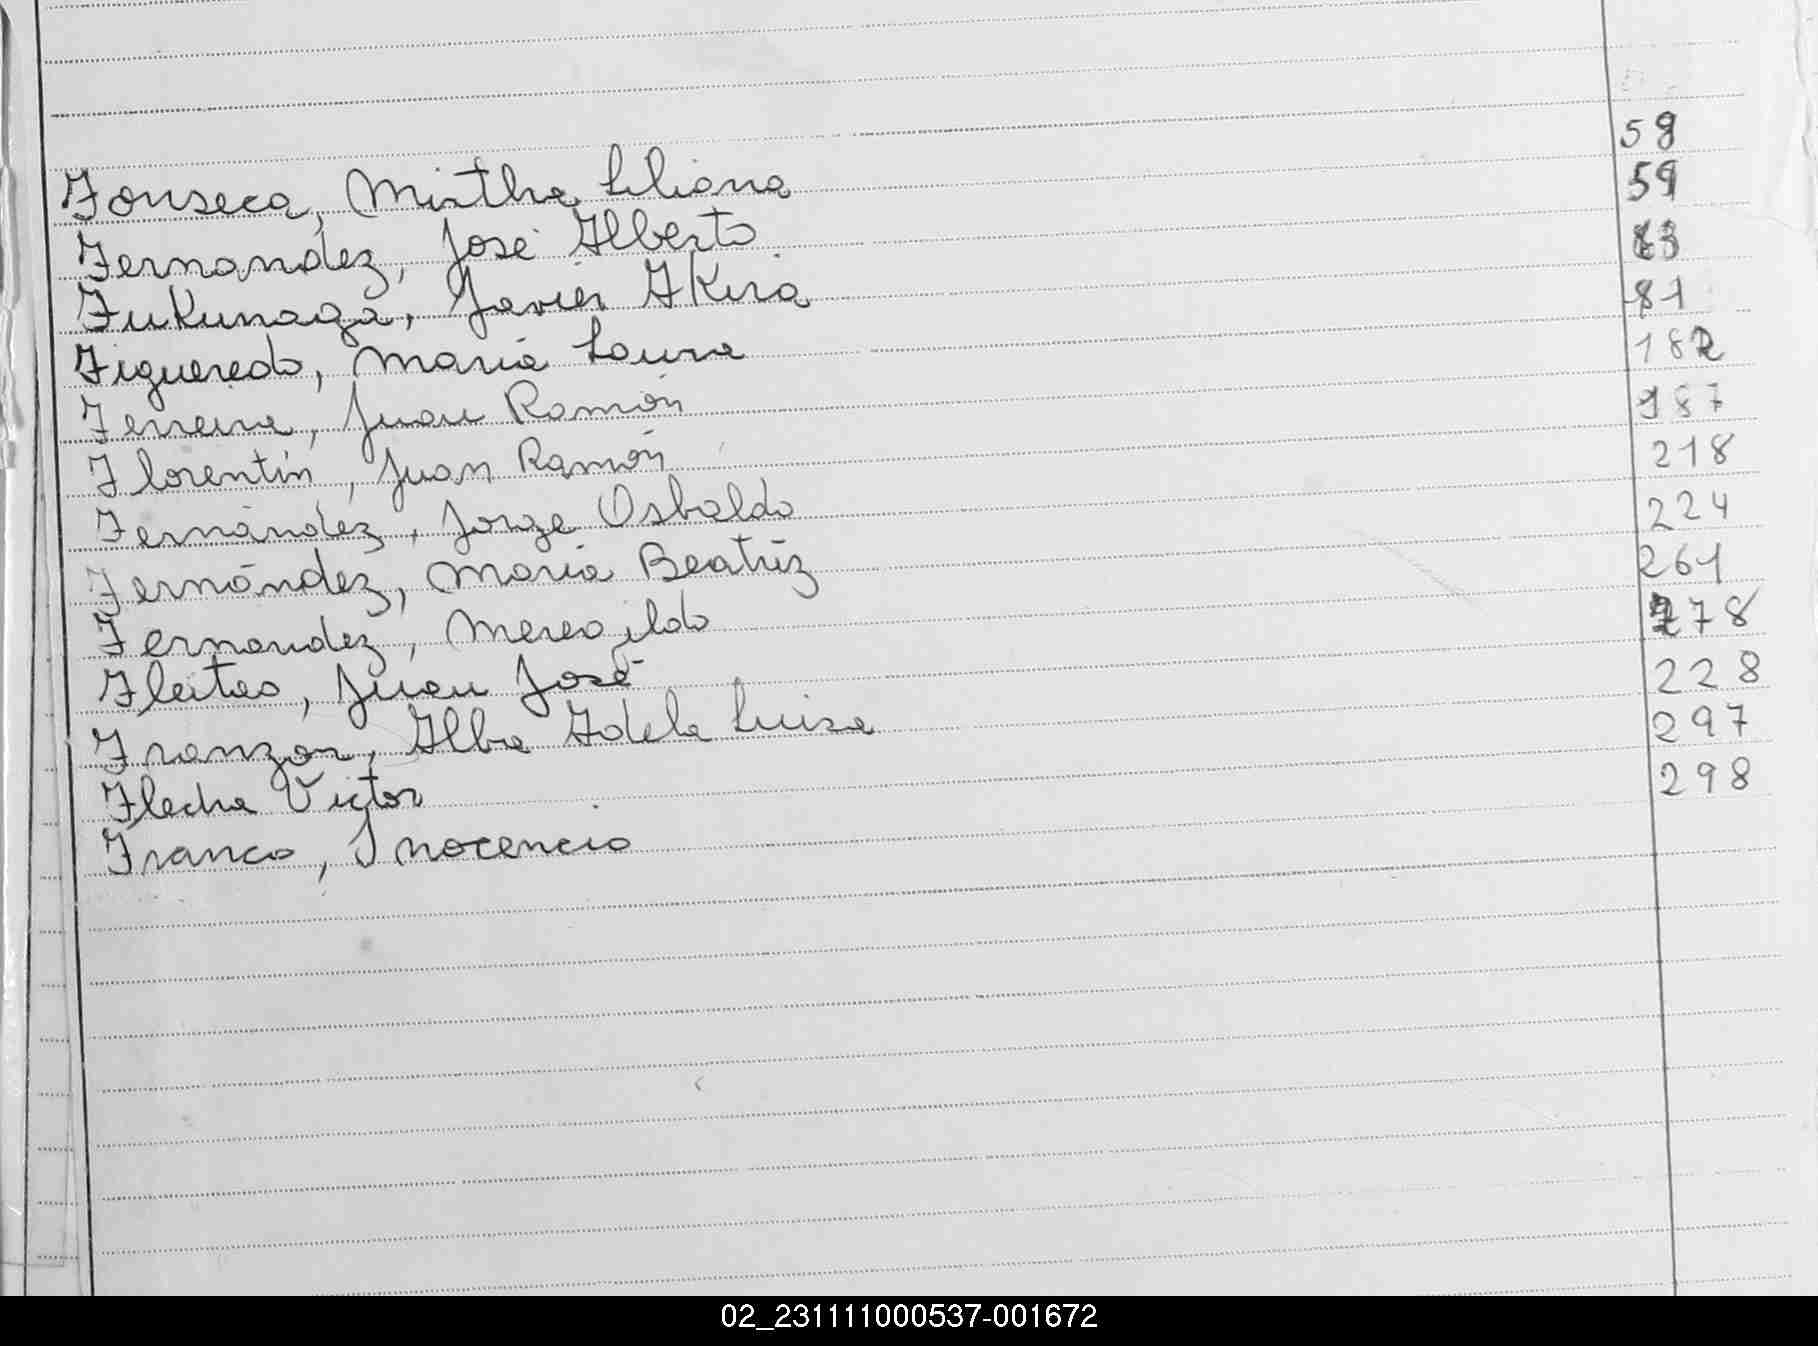 Fonseca, Mirtha Liliana 59
Fernandez, José Alberto 59
Fukunaga, Javier Akira 83
Figueredo, Maria Laura 81
Ferreira, Juan Ramón 182
Florentín, Juan Ramón 187
Fernández, Jorge Osbaldo 218
Fernández, Maria Beatriz 224
Fernandez, 261
Fleitas, Juan José 278
Franzon, Alba Adela Luisa 228
Flecha Victor 297
Franco, Inocencio 298
02_231111000537-001672